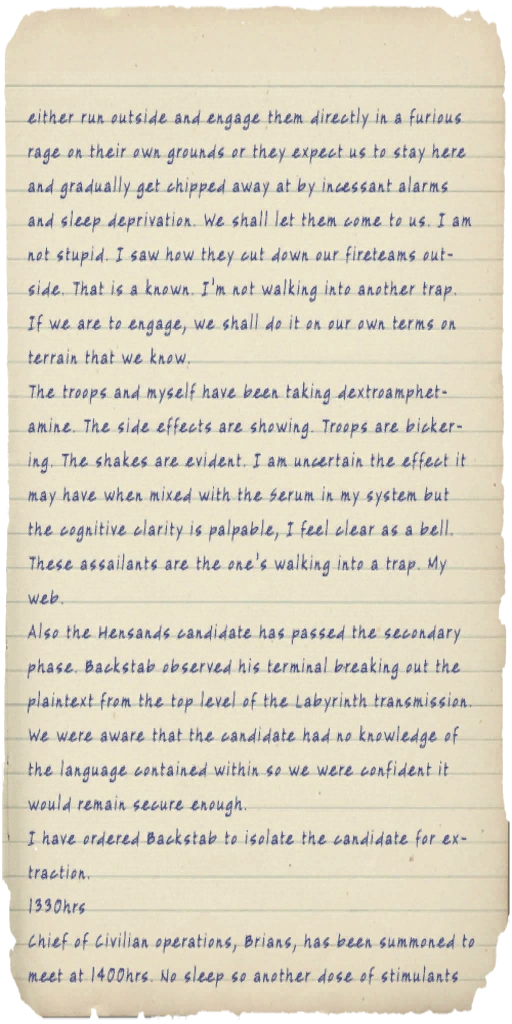 either run outside and engage them directly in a furious
rage on their own grounds or they expect us to stay here
and gradually get chipped away at by incessant alarms
and sleep deprivation. We shall let them come to us. I am
not stupid. I saw how they cut down our fireteams out-
side. That is a known. I'm not walking into another trap.
If we are to engage, we shall do it on our own terms on
terrain that we know.
The troops and myself have been taking dextroamphet-
amine. The side effects are showing. Troops are bicker-
ing. The shakes are evident. I am uncertain the effect it
may have when mixed with the Serum in my system but
the cognitive clarity is palpable, I feel clear as a bell.
These assailants are the one's walking into a trap. My
web.
Also the Hensands candidate has passed the secondary
phase. Backstab observed his terminal breaking out the
plaintext from the top level of the Labyrinth transmission.
We were aware that the candidate had no knowledge of
the language contained within so we were confident it
would remain secure enough.
I have ordered Backstab to isolate the candidate for ex-
traction.
1330hrs
Chief of Civilian operations, Brians, has been summoned to
meet at 1400hrs. No sleep so another dose of stimulants